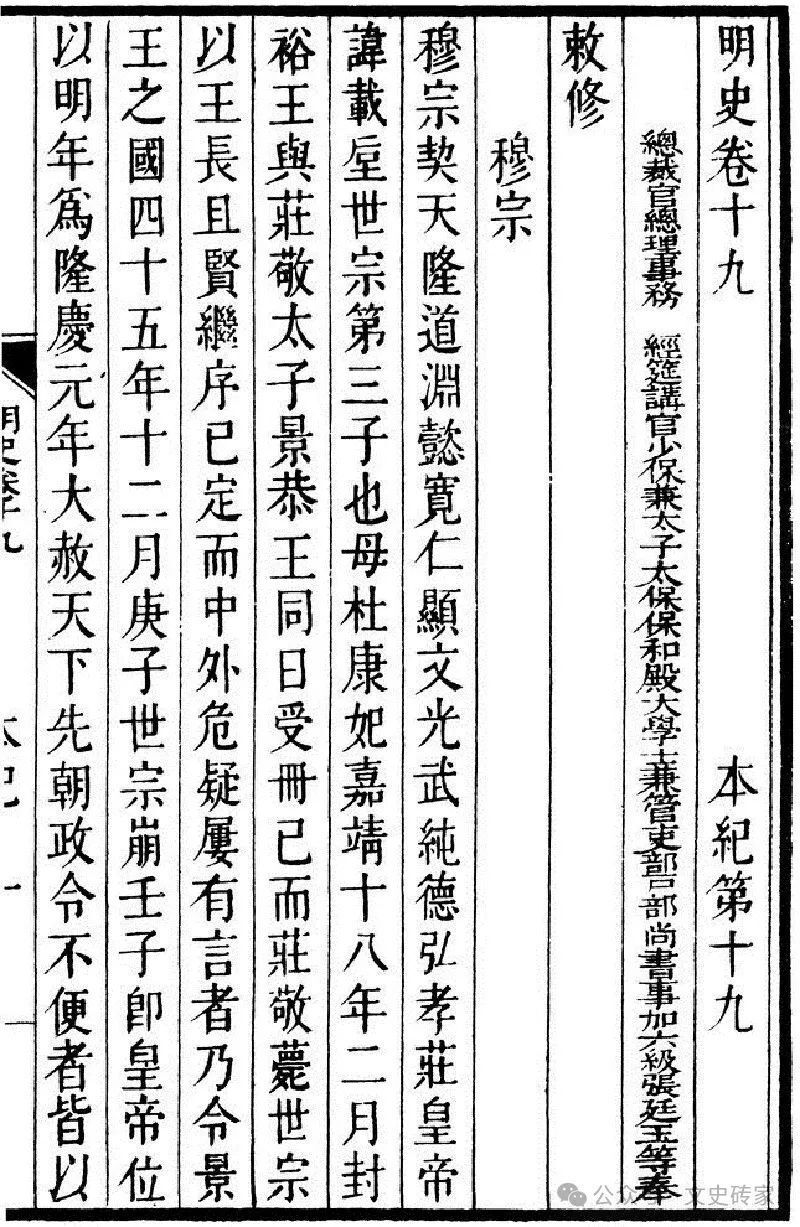 明史卷十九 本紀第十九
總裁官總理事務 經筵講官少保兼太子太保保和殿大學士兼管吏部戶部尚書事加六級張廷玉等奉
敕修
穆宗
穆宗契天隆道淵懿寬仁顯文光武純德弘孝莊皇帝
諱載坖世宗第三子也母杜康妃嘉靖十八年二月封
裕王與莊敬太子景恭王同日受冊已而莊敬薨世宗
以王長且賢繼序已定而中外危疑屢有言者乃令景
王之國四十五年十二月庚子世宗崩壬子卽皇帝位
以明年爲隆慶元年大赦天下先朝政令不便者皆以
明史卷十九 本紀 一
公众号 · 文史砖家